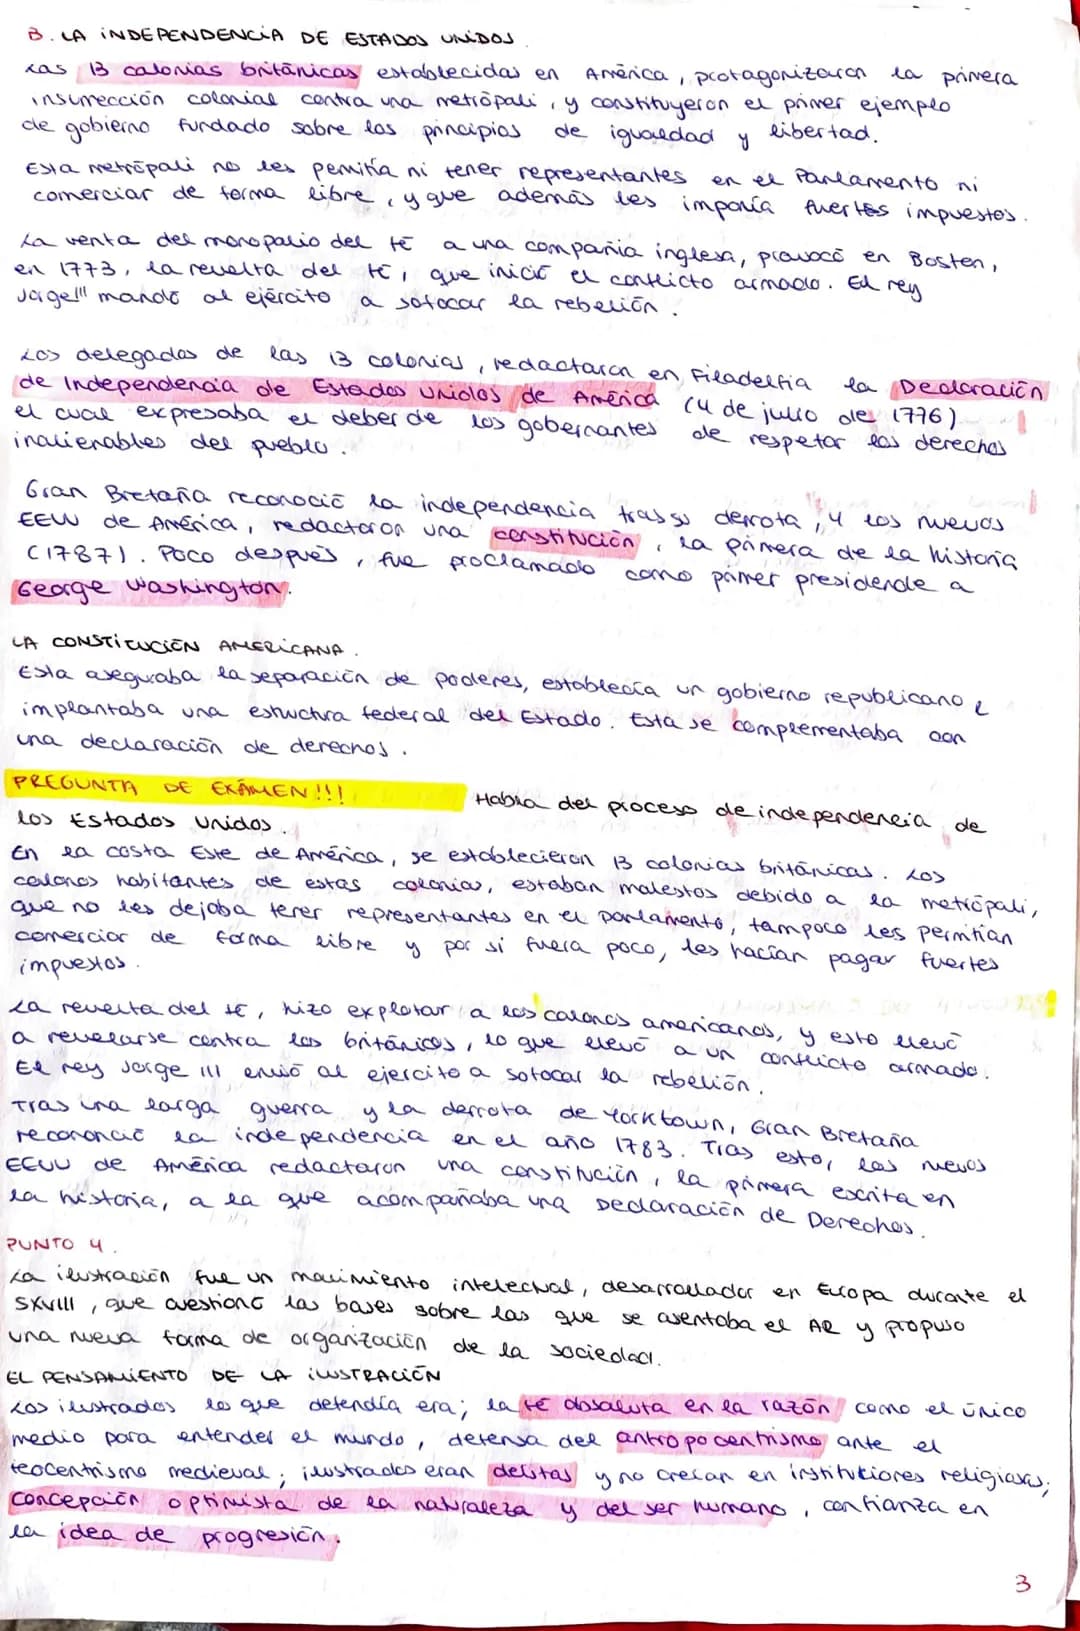 B. LA INDEPENDENCIA DE ESTADOS UNIDOS.
Las 13 colonias británicas establecidas en América, protagonizaron la primera
insurrección colonial contra una metrópoli, y constituyeron el primer ejemplo
de gobierno fundado sobre los principios de igualdad y libertad.
Esta metrópoli no les permitía ni tener representantes en el Parlamento ni
comerciar de forma libre, y que además les imponía fuertes impuestos.
La venta del monopolio del té a una compañia inglesa, provocó en Boston,
en 1773, la revuelta del té, que inició el conflicto armado. El rey
Jorge III mandó al ejército a sofocar la rebelión.
Los delegados de las 13 colonias, redactaron en Filadelfia la Declaración
de Independencia de Estados Unidos de América (4 de julio de 1776)
el cual expresaba el deber de los gobernantes de respetar los derechos
inalienables del pueblo.
Gran Bretaña reconoció la independencia tras su derrota, y los nuevos
EEUU de América, redactaron una constitución, la primera de la historia
(1787). Poco después, fue proclamado como primer presidende a
George Washington.
LA CONSTITUCIÓN AMERICANA.
Esta aseguraba la separación de poderes, establecía un gobierno republicano e
implantaba una estructura federal del Estado. Esta se complementaba con
una declaración de derechos.
PREGUNTA DE EXÁMEN!!! Habla del proceso de independencia de
los Estados Unidos.
En la costa Este de América, se establecieron 13 colonias británicas. Los
colonos habitantes de estas colonias, estaban molestos debido a la metrópoli,
que no les dejaba tener representantes en el parlamento, tampoco les permitían
comerciar de forma libre y por si fuera poco, les hacían pagar fuertes
impuestos.
La revuelta del té, hizo explotar a los colonos americanos, y esto llevó
a revelarse contra los británicos, lo que llevó a un conflicto armado.
El rey Jorge III envió al ejercito a sofocar la rebelión.
Tras una larga guerra y la derrota de Yorktown, Gran Bretaña
recononció la independencia en el año 1783. Tras esto, los nuevos
EEUU de América redactaron una constitución, la primera escrita en
la historia, a la que acompañaba una Declaración de Derechos.
PUNTO 4.
La ilustración fue un movimiento intelectual, desarrollador en Europa durante el
SXVIII, que cuestionó las bases sobre las que se asentaba el AR y propuso
una nueva forma de organización de la sociedad.
EL PENSAMIENTO DE LA ILUSTRACIÓN
Los ilustrados lo que defendía era; la fé absoluta en la razón como el único
medio para entender el mundo, defensa del antropocentrismo ante el
teocentrismo medieval; ilustrados eran deístas y no creían en instituciones religiosas;
concepción optimista de la naturaleza y del ser humano, confianza en
la idea de progresión.
3